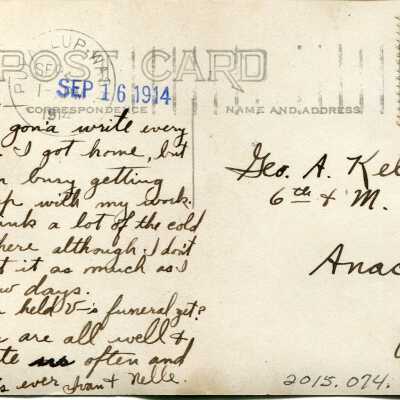 PUYALLUP, WASH.
SEP
1914
SEP 16 1914
POST CARD
CORRESPONDENCE
NAME AND ADDRESS
gona write every
I got home, but
busy getting
up with my work.
think a lot of the cold
there although I don't
it as much as I
few days.
held V-s funeral yet?
are all well &
write us often and
as ever Ivan & Nelle.
Geo. A. Kel
6th & M.
Anac
2015.074.